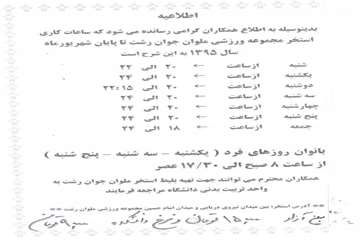 اطلاعیه
بدینوسیله به اطلاع همکاران گرامی رسانده می شود که ساعات کاری
استخر مجموعه ورزشی ملوان جوان رشت تا پایان شهریورماه
سال ۱۳۹۵ به این شرح است
شنبه از ساعت ← ۲۰ الی ۲۲
یکشنبه از ساعت ← ۲۰ الی ۲۴
دوشنبه از ساعت ← ۲۰ الی ۲۲:۱۵
سه شنبه از ساعت ← ۲۰ الی ۲۴
چهارشنبه از ساعت ← ۲۰ الی
پنج شنبه از ساعت ← ۲۰ الی ۲۴
جمعه از ساعت ← ۱۸ الی ۲۴
بانوان روزهای فرد ( یکشنبه – سه شنبه – پنج شنبه )
از ساعت ۸ صبح الی ۱۷/۳۰ عصر
همکاران محترم می توانند جهت تهیه بلیط استخر ملوان جوان رشت به
واحد تربیت بدنی دانشگاه مراجعه فرمایند
آدرس استخر: بین میدان نیروی دریایی و میدان امام حسین مجموعه ورزشی ملوان رشت
تومان نرخ دانشگاه تومان